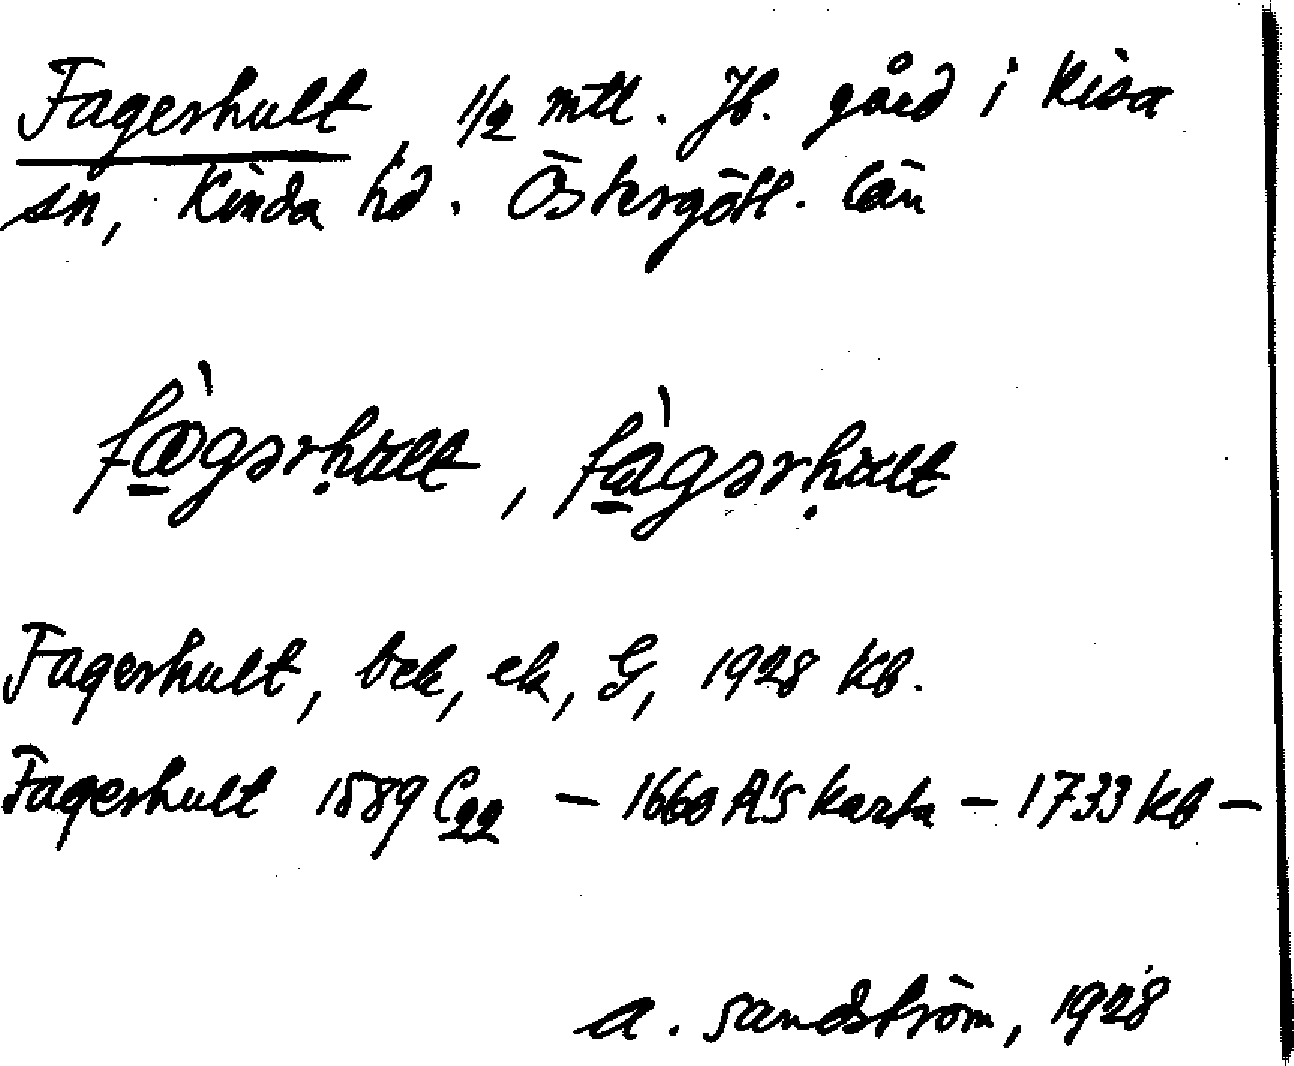 Fagerhult, 1/2 mtl. Jb. gård i Kisa
sn, Kinda hd. Östergötl. län
fàgərḥult, fàgərḥult
Fagerhult, bek, ek, G, 1928 Kb.
Fagerhult 1589 Cgg – 1660 A's karta – 1733 Kb –
A. Sandström, 1928